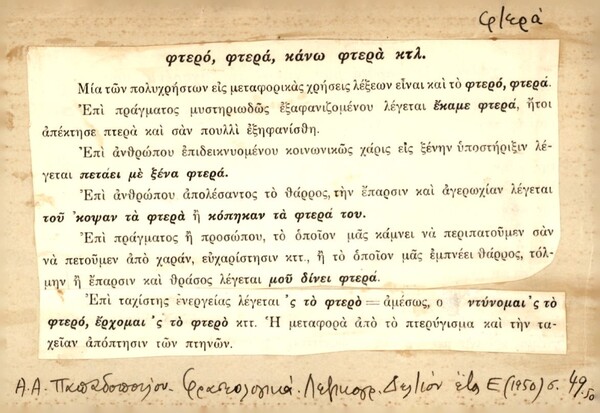 φτερά
φτερό, φτερά, κάνω φτερὰ κτλ.
Μία τῶν πολυχρήστων εἰς μεταφορικὰς χρήσεις λέξεων εἶναι καὶ τὸ φτερό, φτερά.
Ἐπὶ πράγματος μυστηριωδῶς ἐξαφανιζομένου λέγεται ἔκαμε φτερά, ἤτοι
ἀπέκτησε πτερὰ καὶ σὰν πουλλὶ ἐξηφανίσθη.
Ἐπὶ ἀνθρώπου ἐπιδεικνυομένου κοινωνικῶς χάρις εἰς ξένην ὑποστήριξιν λέ-
γεται πετάει μὲ ξένα φτερά.
Ἐπὶ ἀνθρώπου ἀπολέσαντος τὸ θάρρος, τὴν ἔπαρσιν καὶ ἀγερωχίαν λέγεται
τοῦ 'κοψαν τὰ φτερὰ ἢ κόπηκαν τὰ φτερά του.
Ἐπὶ πράγματος ἢ προσώπου, τὸ ὁποῖον μᾶς κάμνει νὰ περιπατοῦμεν σὰν
νὰ πετοῦμεν ἀπὸ χαράν, εὐχαρίστησιν κττ., ἢ τὸ ὁποῖον μᾶς ἐμπνέει θάρρος, τόλ-
μην ἢ ἔπαρσιν καὶ θράσος λέγεται μοῦ δίνει φτερά.
Ἐπὶ ταχίστης ἐνεργείας λέγεται 'ς τὸ φτερὸ = ἀμέσως, ο ντύνομαι 'ς τὸ
φτερό, ἔρχομαι 'ς τὸ φτερὸ κττ. Ἡ μεταφορὰ ἀπὸ τὸ πτερύγισμα καὶ τὴν τα-
χεῖαν ἀπόπτησιν τῶν πτηνῶν.
Α.Α. Παπαδοπούλου. Φρασεολογικά. Λεξικογρ. Δελτίον ἔτος Ε (1950) σ. 49.50